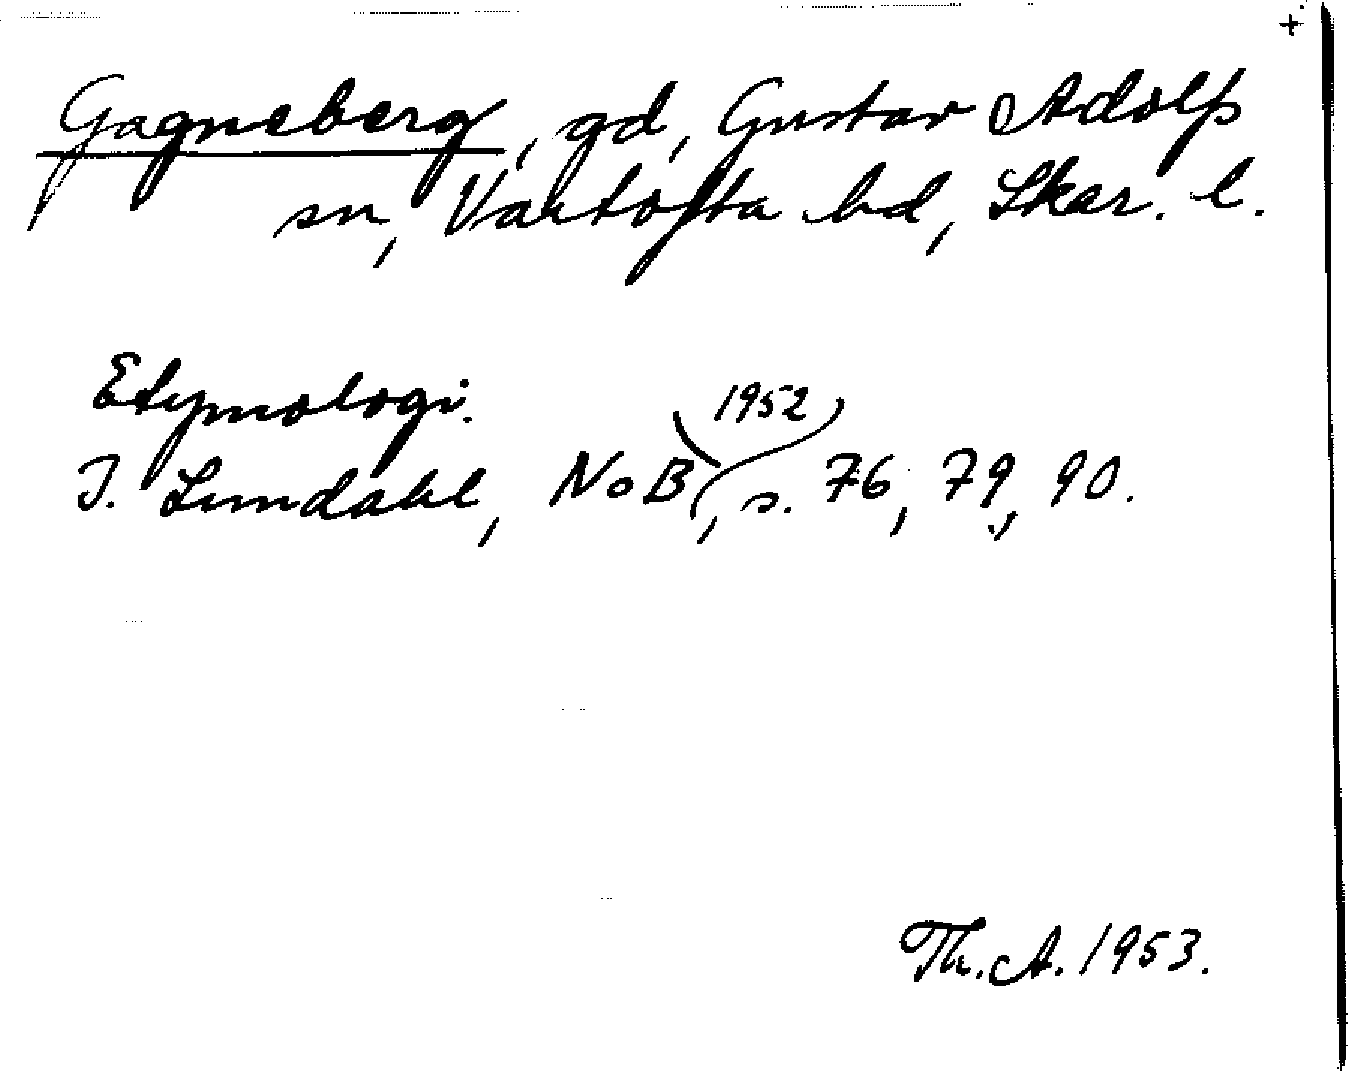 +
Gagneberg, gd, Gustav Adolfs
sn, Vartofta hd, Skar. l.
Etymologi.
I. Lundahl, NoB 1952, s. 76, 79, 90.
Th. A. 1953.